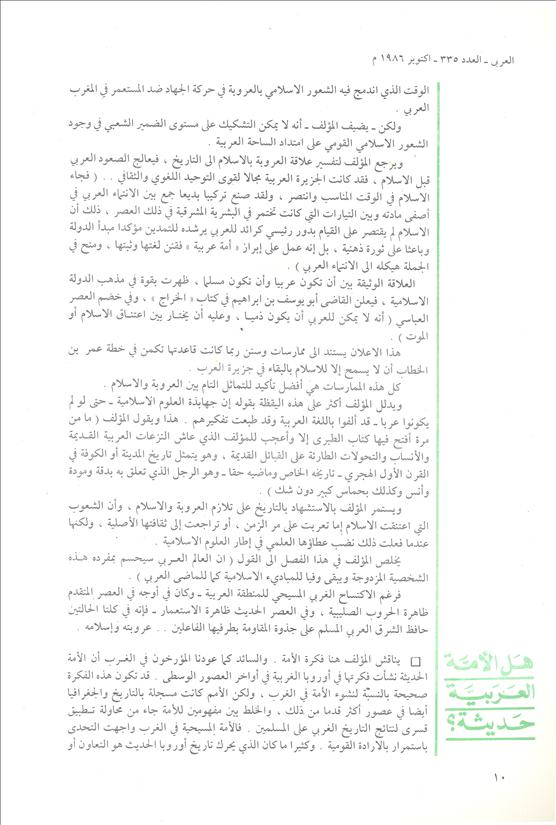 العربي ـ العدد ٣٣٥ ـ اكتوبر ١٩٨٦ م
الوقت الذي اندمج فيه الشعور الاسلامي بالعروبة في حركة الجهاد ضد المستعمر في المغرب
العربي .
ولكن ـ يضيف المؤلف ـ أنه لا يمكن التشكيك على مستوى الضمير الشعبي في وجود
الشعور الاسلامي القومي على امتداد الساحة العربية .
ويرجع المؤلف لتفسير علاقة العروبة بالاسلام الى التاريخ ، فيعالج الصعود العربي
قبل الاسلام ، فقد كانت الجزيرة العربية مجالا لقوى التوحيد اللغوي والثقافي . . ( فجاء
الاسلام في الوقت المناسب وانتصر ، ولقد صنع تركيبا بديعا جمع بين الانتماء العربي في
أصفى مادته وبين التيارات التي كانت تختمر في البشرية المشرقية في ذلك العصر ، ذلك أن
الاسلام لم يقتصر على القيام بدور رئيسي كرائد للعربي يرشده للتمدين مؤكدا مبدأ الدولة
وباعثا على ثورة ذهنية ، بل إنه عمل على إبراز « أمة عربية » فقنن لغتها وثبتها ، ومنح في
الجملة هيكله الى الانتماء العربي ) .
العلاقة الوثيقة بين أن تكون عربيا وأن تكون مسلما ، ظهرت بقوة في مذهب الدولة
الاسلامية ، فيعلن القاضى أبو يوسف بن ابراهيم في كتاب « الخراج » ، وفي خضم العصر
العباسي ( أنه لا يمكن للعربي أن يكون ذميا ، وعليه أن يختار بين اعتناق الاسلام أو
الموت ) .
هذا الاعلان يستند الى ممارسات وسنن ربما كانت قاعدتها تكمن في خطة عمر بن
الخطاب أن لا يسمح إلا للاسلام بالبقاء في جزيرة العرب .
كل هذه الممارسات هي أفضل تأكيد للتماثل التام بين العروبة والاسلام .
ويدلل المؤلف أكثر على هذه اليقظة بقوله إن جهابذة العلوم الاسلامية ـ حتى لو لم
يكونوا عربا ـ قد ألفوا باللغة العربية وقد طبعت تفكيرهم . هذا ويقول المؤلف ( ما من
مرة أفتح فيها كتاب الطبرى إلا وأعجب للمؤلف الذي عاش النزعات العربية القديمة
والأنساب والتحولات الطارئة على القبائل القديمة ، وهو يتمثل تاريخ المدينة أو الكوفة في
القرن الأول الهجري ـ تاريخه الخاص وماضيه حقا ـ وهو الرجل الذي تعلق به بدقة ومودة
وأنس وكذلك بحماس كبير دون شك ) .
ويستمر المؤلف بالاستشهاد بالتاريخ على تلازم العروبة والاسلام ، وأن الشعوب
التي اعتنقت الاسلام إما تعربت على مر الزمن ، أو تراجعت إلى ثقافتها الأصلية ، ولكنها
عندما فعلت ذلك نضب عطاؤها العلمي في إطار العلوم الاسلامية .
يخلص المؤلف في هذا الفصل الى القول ( ان العالم العربي سيحسم بمفرده هذه
الشخصية المزدوجة ويبقى وفيا للمباديء الاسلامية كما للماضى العربي ) .
فرغم الاكتساح الغربي المسيحي للمنطقة العربية ـ وكان في أوجه في العصر المتقدم
ظاهرة الحروب الصليبية ، وفي العصر الحديث ظاهرة الاستعمار ـ فإنه في كلتا الحالتين
حافظ الشرق العربي المسلم على جذوة المقاومة بطرفيها الفاعلين . . عروبته وإسلامه .
هل الأمة
العربية
حديثة؟
□ يناقش المؤلف هنا فكرة الأمة . والسائد كما عودنا المؤرخون في الغرب أن الأمة
الحديثة نشأت فكرتها في أوروبا الغربية في أواخر العصور الوسطى . قد تكون هذه الفكرة
صحيحة بالنسبة لنشوء الأمة في الغرب ، ولكن الأمم كانت مسجلة بالتاريخ والجغرافيا
أيضا في عصور أكثر قدما من ذلك ، والخلط بين مفهومين للأمة جاء من محاولة تطبيق
قسرى لنتائج التاريخ الغربي على المسلمين . فالأمة المسيحية في الغرب واجهت التحدى
باستمرار بالارادة القومية . وكثيرا ما كان الذي يحرك تاريخ أوروبا الحديث هو التعاون أو
١٠